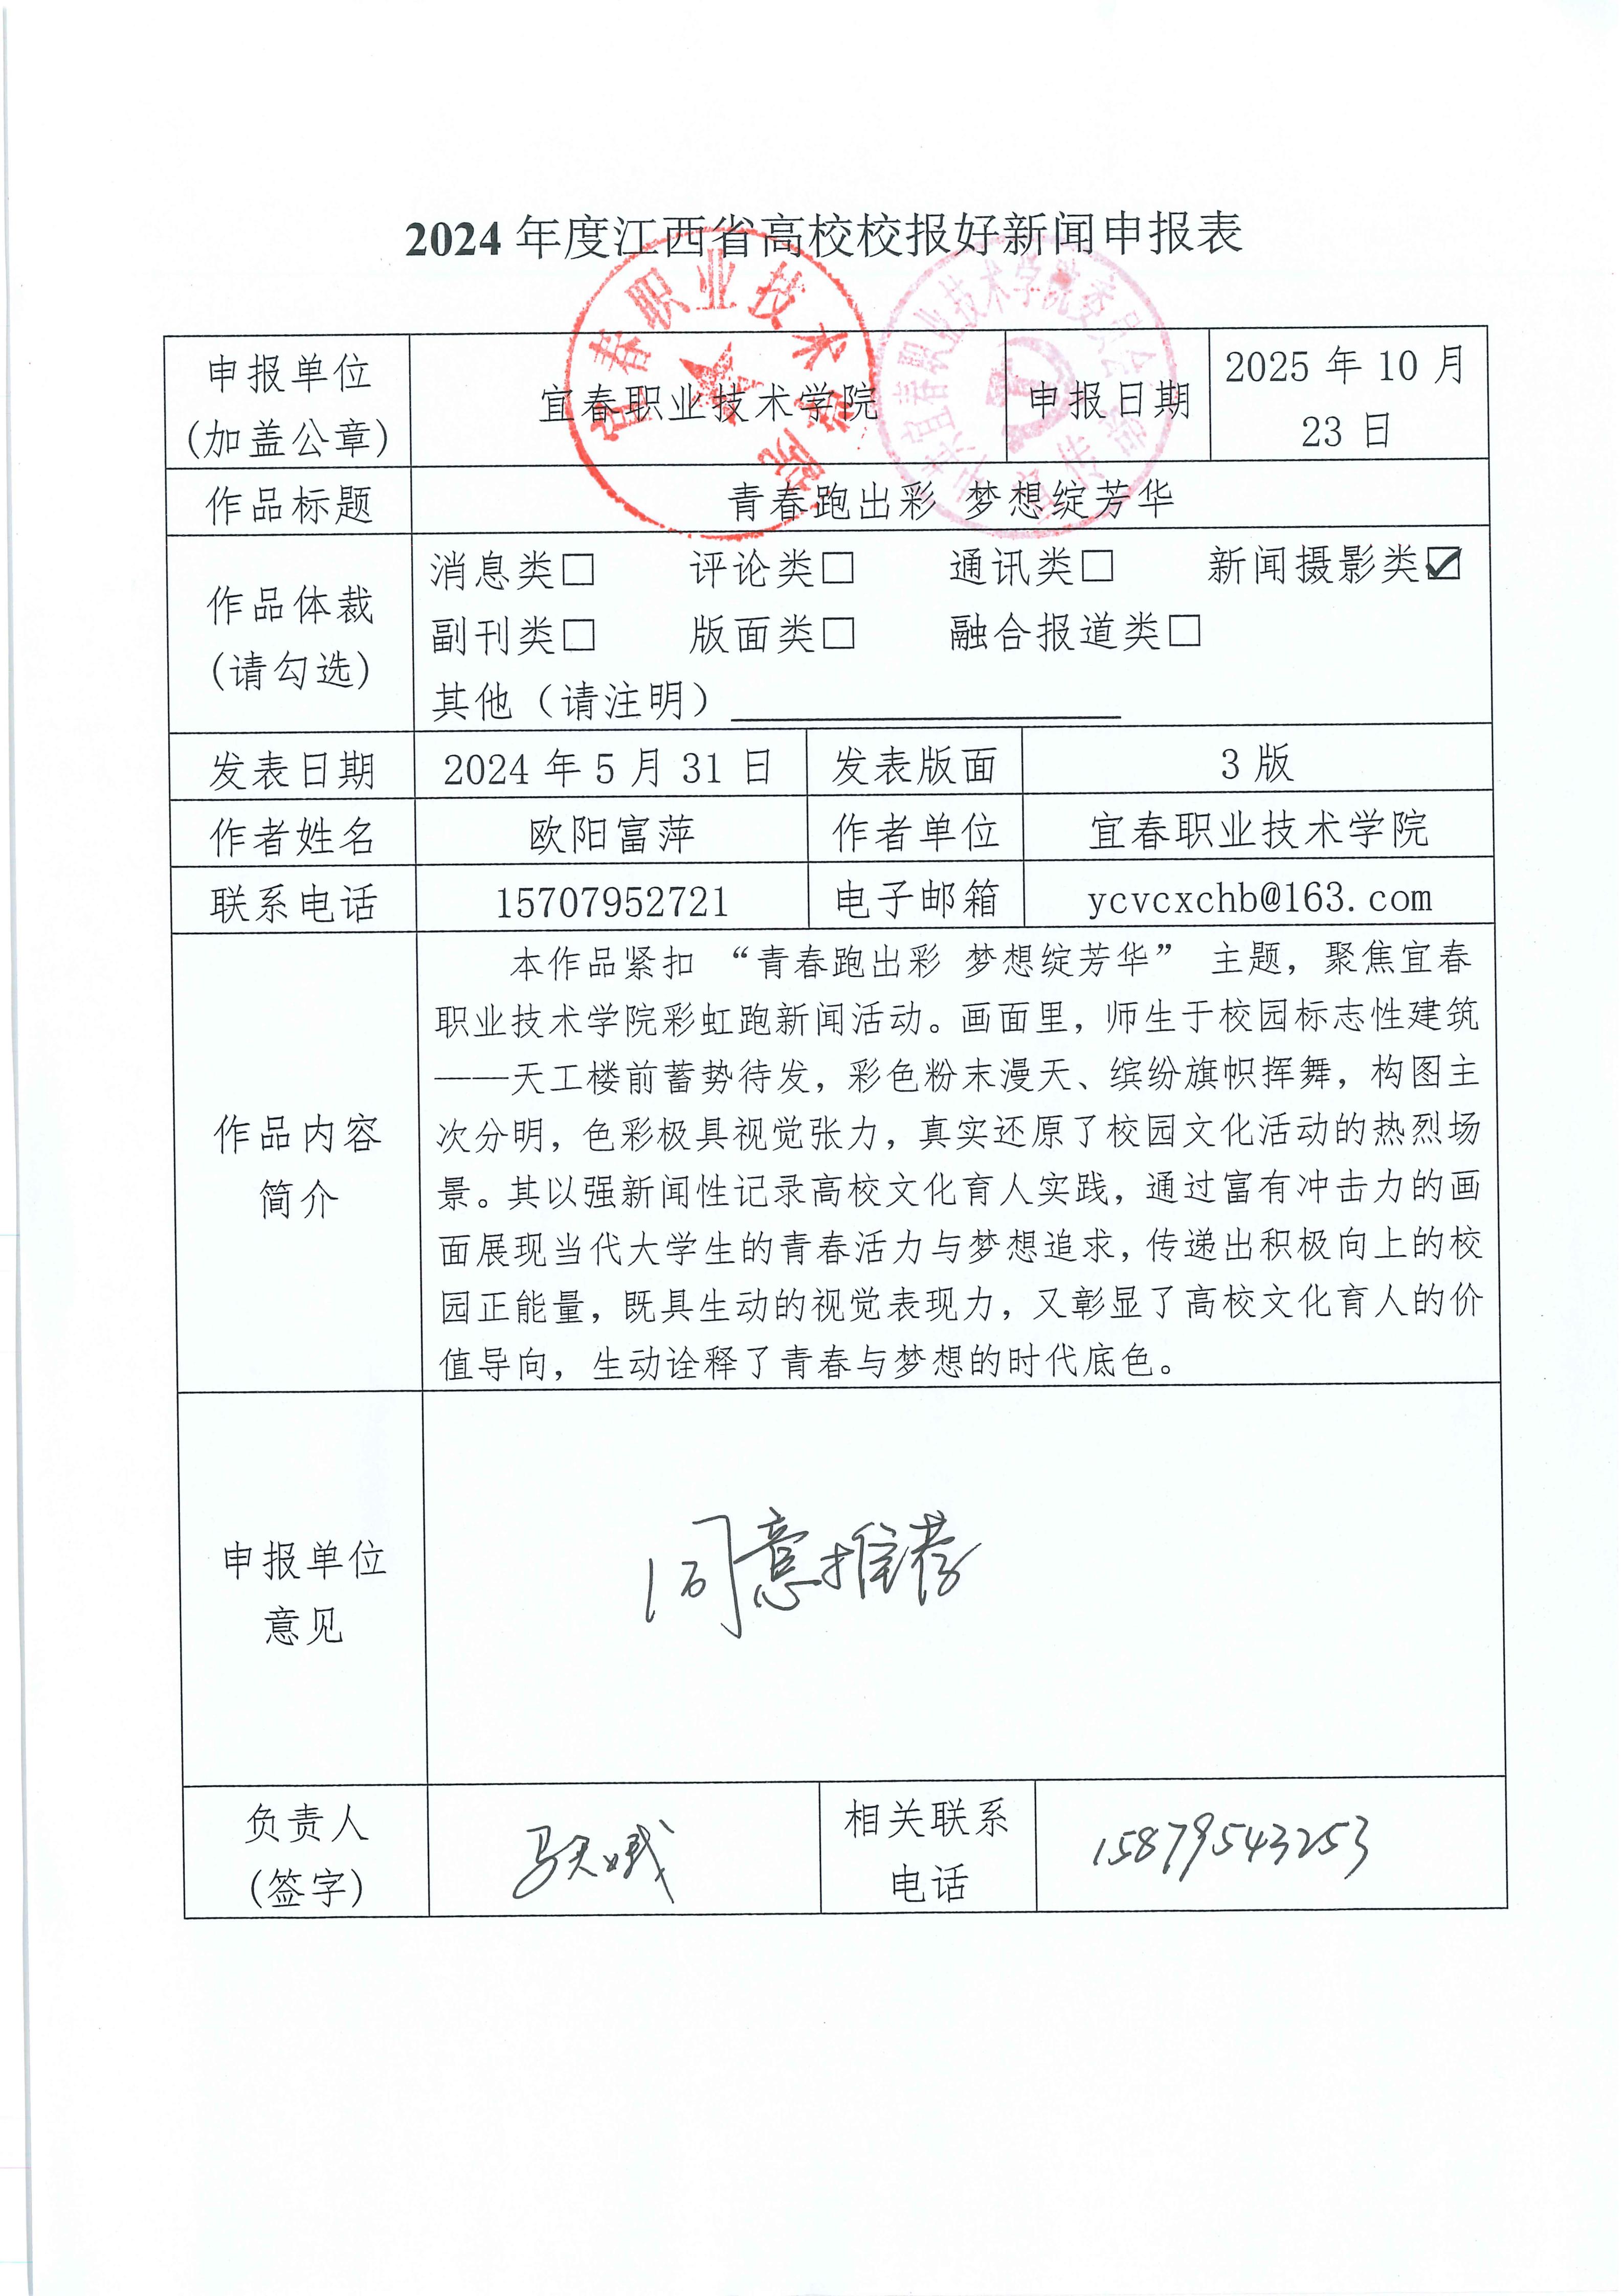 2024年度江西省高校校报好新闻申报表
宜春职业技术学院
申报单位
(加盖公章)
宜春职业技术学院
申报日期
2025 年 10 月
23 日
作品标题
青春跑出彩 梦想绽芳华
作品体裁
(请勾选)
消息类☐ 评论类☐ 通讯类☐ 新闻摄影类☑
副刊类☐ 版面类☐ 融合报道类☐
其他（请注明）
发表日期
2024 年 5 月 31 日
发表版面
3 版
作者姓名
欧阳富萍
作者单位
宜春职业技术学院
联系电话
15707952721
电子邮箱
ycvcxchb@163.com
作品内容
简介
本作品紧扣 “青春跑出彩 梦想绽芳华” 主题，聚焦宜春
职业技术学院彩虹跑新闻活动。画面里，师生于校园标志性建筑
——天工楼前蓄势待发，彩色粉末漫天、缤纷旗帜挥舞，构图主
次分明，色彩极具视觉张力，真实还原了校园文化活动的热烈场
景。其以强新闻性记录高校文化育人实践，通过富有冲击力的画
面展现当代大学生的青春活力与梦想追求，传递出积极向上的校
园正能量，既具生动的视觉表现力，又彰显了高校文化育人的价
值导向，生动诠释了青春与梦想的时代底色。
申报单位
意见
同意推荐
负责人
(签字)
相关联系
电话
15879543253